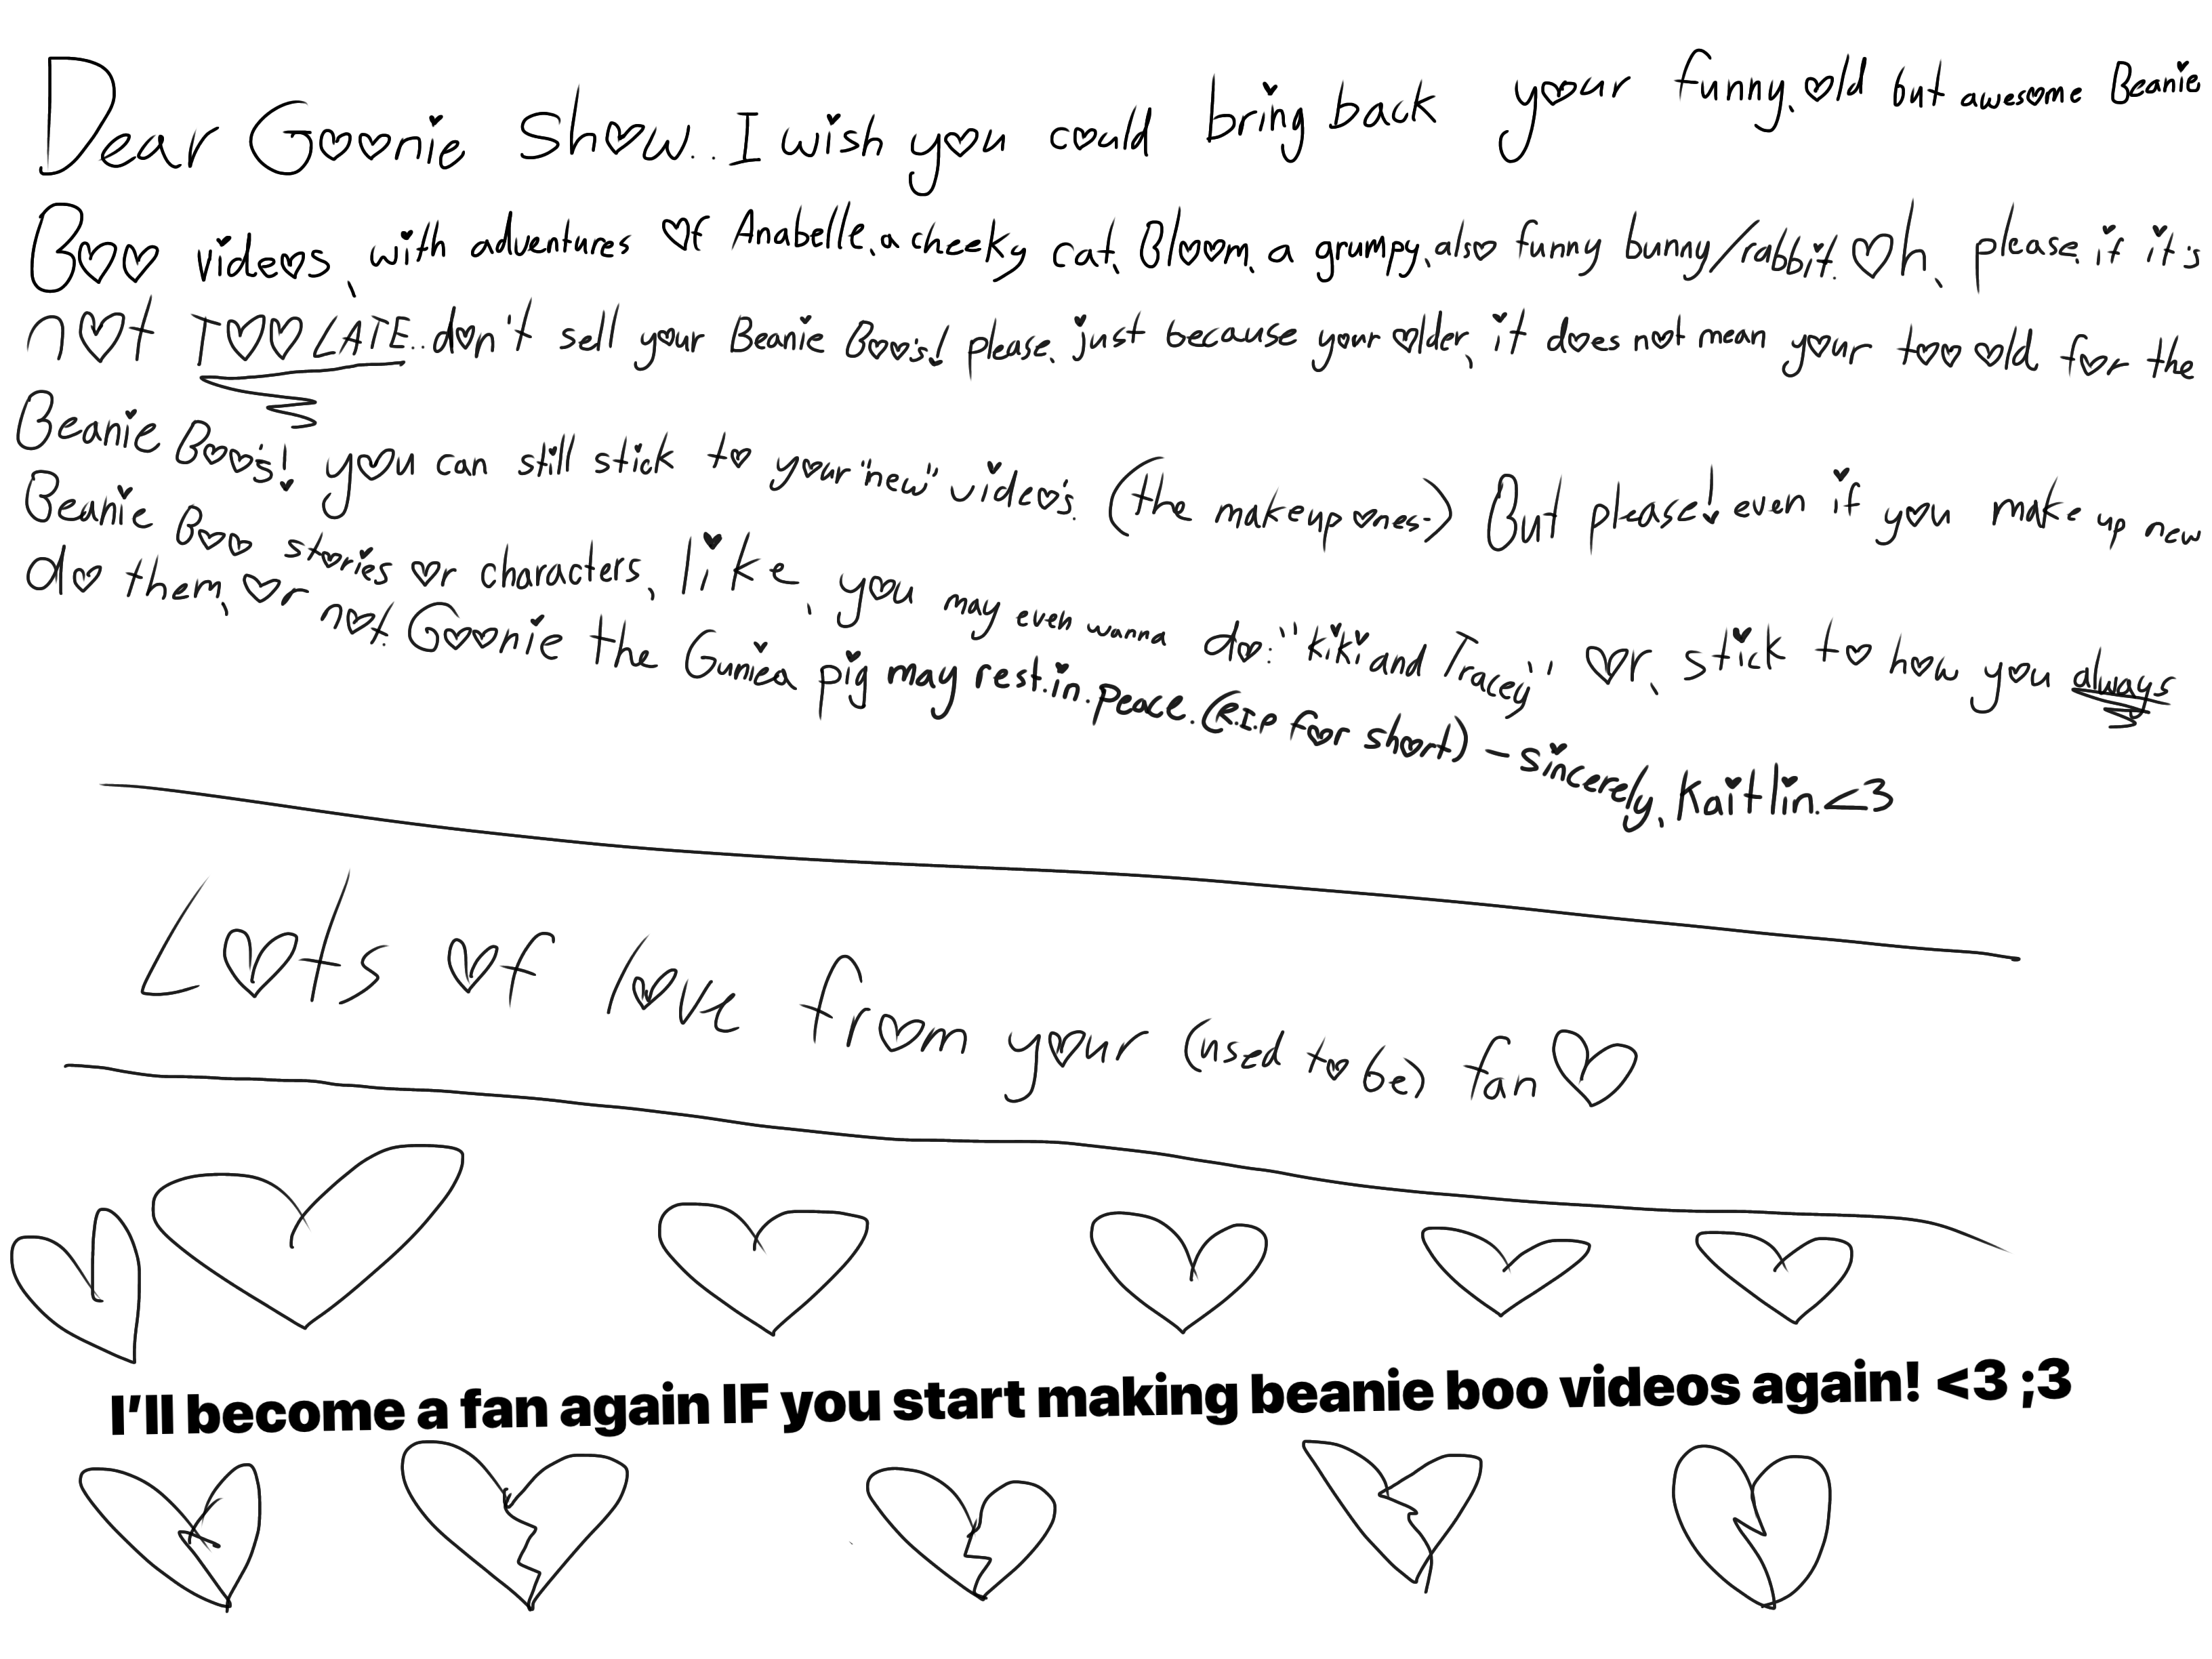 Dear Goonie Show.. I wish you could bring back your funny, old but awesome Beanie
Boo videos, with adventures of Anabelle, a cheeky cat, Bloom, a grumpy, also funny bunny/rabbit. Oh, please, if it's
not TOO LATE.. don't sell your Beanie Boo's! please, just because your older, it does not mean your too old for the
Beanie Boo's! you can still stick to your "new" video's. (the makeup ones-) But please! even if you make up new
Beanie Boo stories or characters, like, you may even wanna do: "kiki and Tracey" or, stick to how you always
do them, or not. Goonie the Guniea pig may rest.in.peace. (R.I.P for short) - sincerely, Kaitlin. <3
Lots of love from your (used to be) fan
I'll become a fan again IF you start making beanie boo videos again! <3 ;3